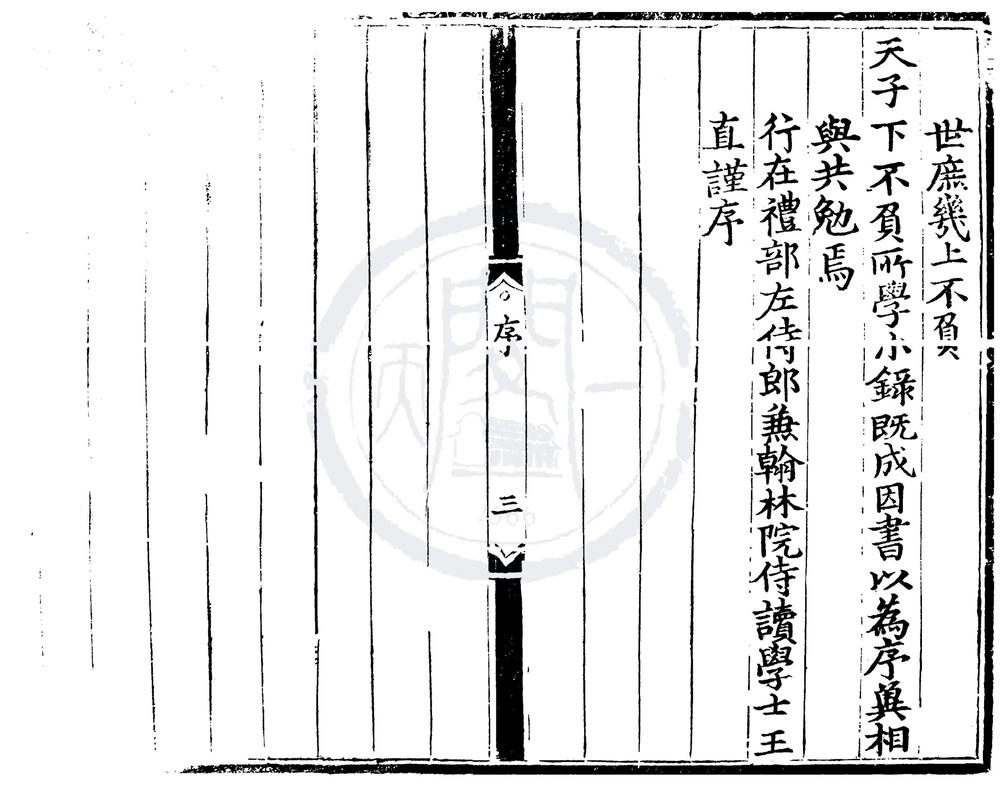 世庶幾上不負
天子下不負所學小錄既成因書以為序冀相
與共勉焉
行在禮部左侍郎兼翰林院侍讀學士王
直謹序
序
三
天一閣